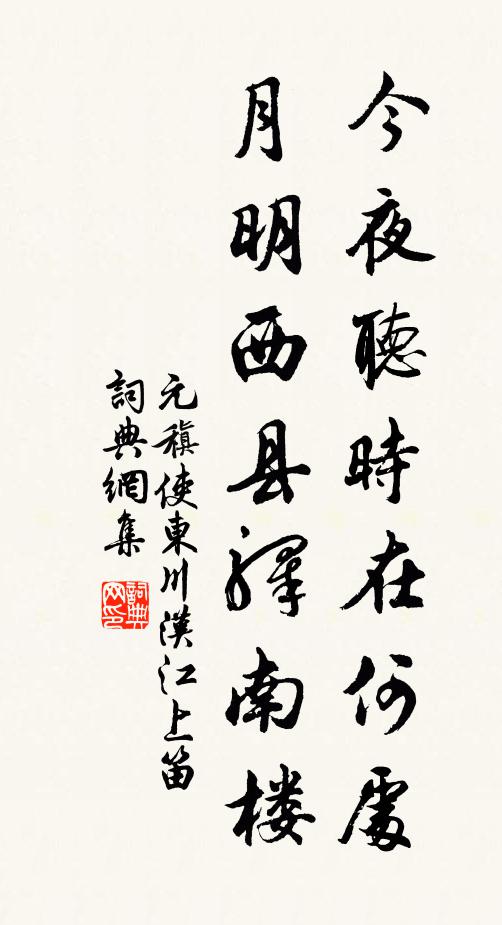 今夜聽時在何處
月明西县驛南楼
元稹使東川漢江上笛
詞典網集
詞典网印